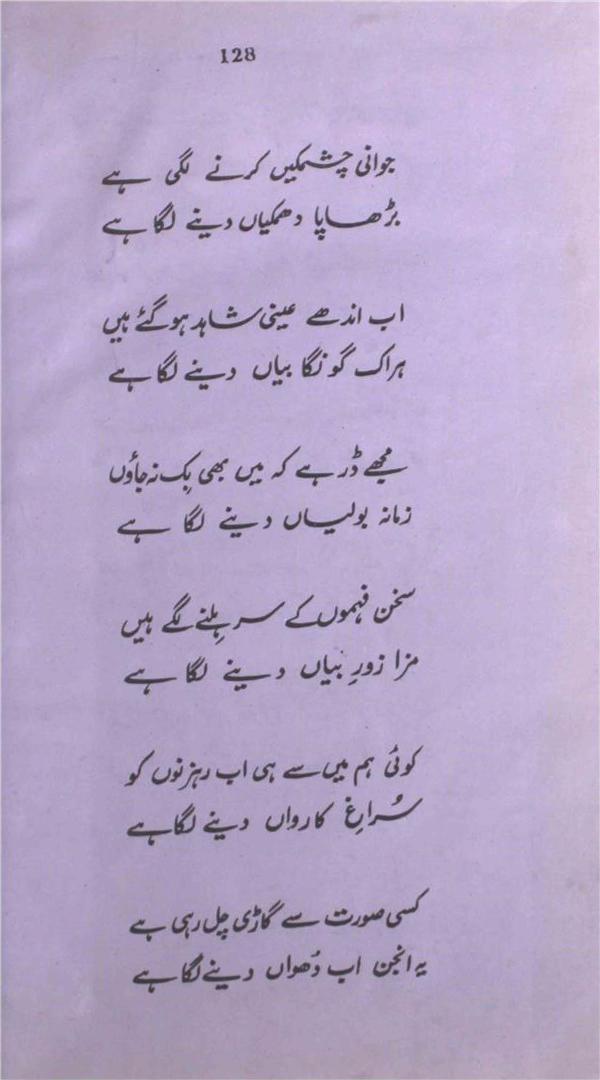 128
جوانی چشمکیں کرنے لگی ہے
بڑھاپا دھمکیاں دینے لگا ہے
اب اندھے عینی شاہد ہوگئے ہیں
ہراک گونگا بیاں دینے لگا ہے
مجھے ڈر ہے کہ میں بھی بِک نہ جاؤں
زمانہ بولیاں دینے لگا ہے
سخن فہموں کے سر ہِلنے لگے ہیں
مزا زورِ بیاں دینے لگا ہے
کوئی ہم میں سے ہی اب رہزنوں کو
سُراغِ کارواں دینے لگا ہے
کسی صورت سے گاڑی چل رہی ہے
یہ انجن اب دُھواں دینے لگا ہے